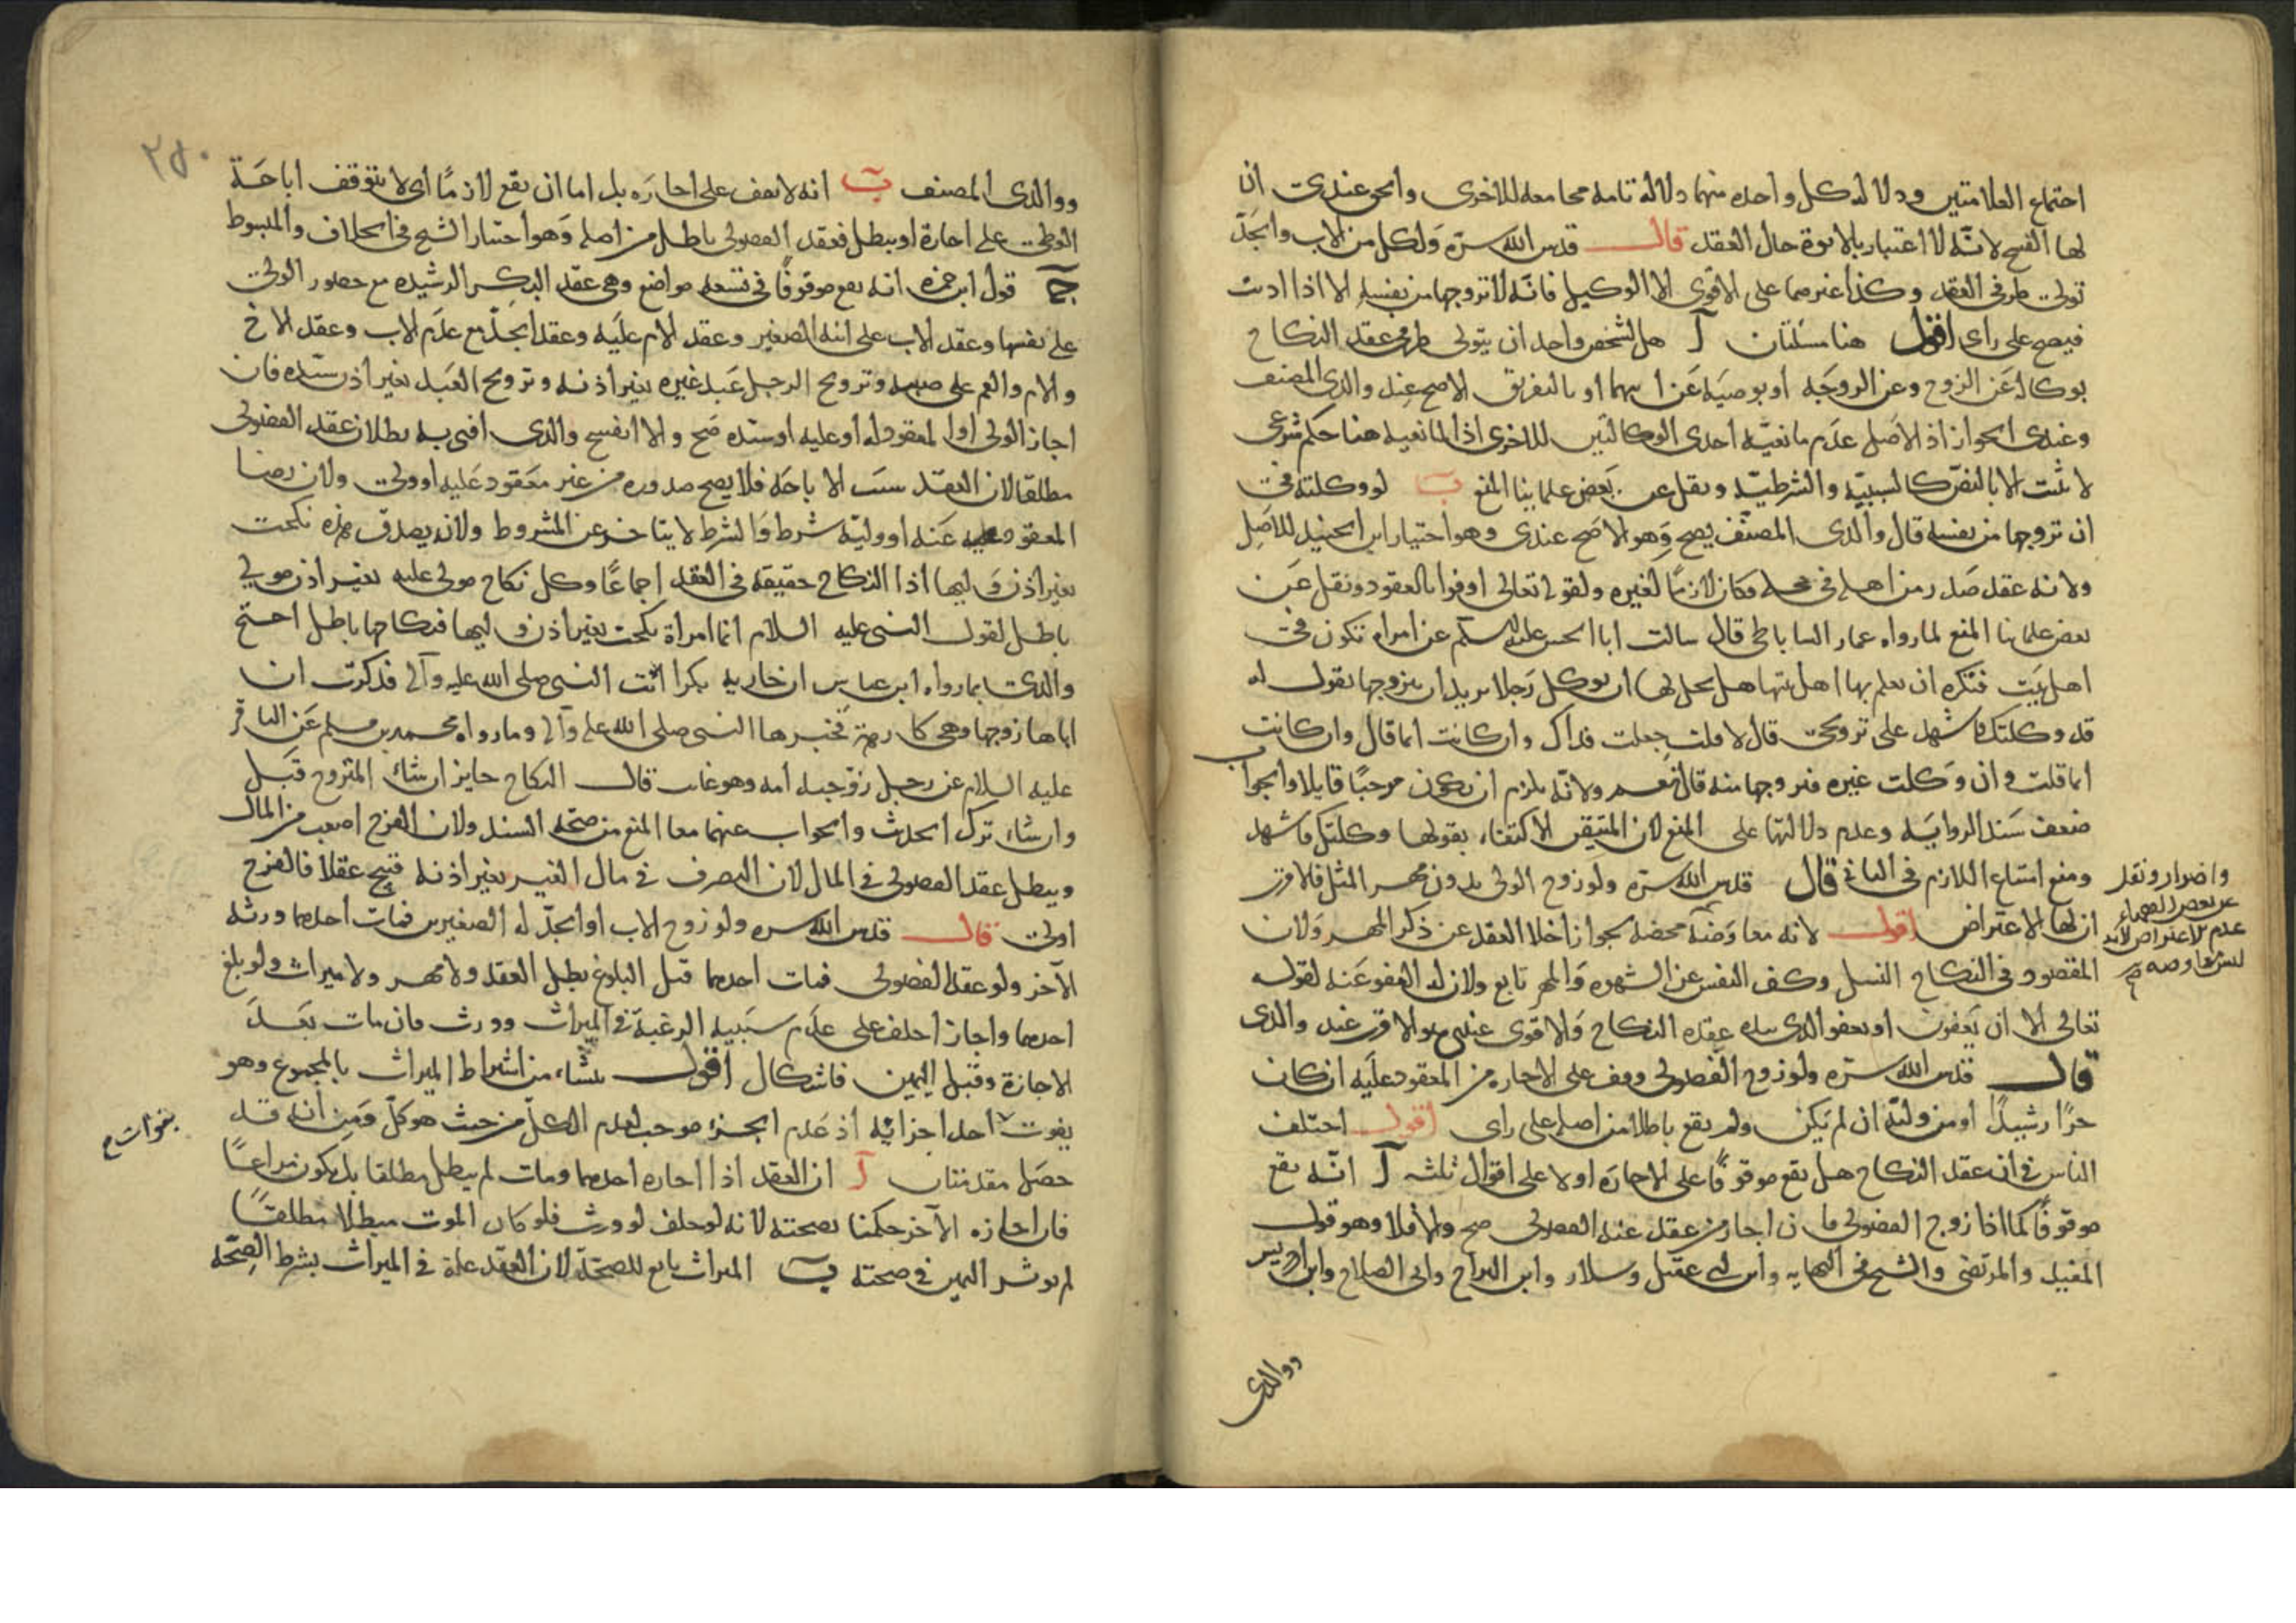 احتماع العلامتين ودلالة كل واحده منهما دلالة تامة مجامعه للاخرى وا عندى ان
لها الفسح لانه لا اعتبار بالابوة حال العقد قال قدس الله سره ولكل من الاب والجد
تولى طرفى العقد وكذا غيرهما على الاقوى الا الوكيل فانه لا تزوجها من نفسه الا اذا اذنت
فيصح على راى اقول هنا مسئلتان آ هل لشخص واحد ان يتولى طرفى عقد النكاح
بوكالة عن الزوج وعن الزوجه او بوصيه عن ابيهما او بالتفريق الاصح عند والدى المصنف
وعندى الجواز اذ الاصل عدم مانعيه احدى الوكالتين للاخرى اذ المانعيه هنا حكم شرعى
لا ثبت الا بالنص كالسببيه والشرطيه ونقل عن بعض علماينا المنع ب لو وكلته فى
ان تزوجها من نفسه قال والدى المصنف يصح وهو الاصح عندى وهو اختيار ابن الجنيد للاصل
ولانه عقد صدر من اهله فى محله فكان لازما لغيره ولقوله تعالى اوفوا بالعقود ونقل عن
بعض علماينا المنع لما رواه عمار الساباطى قال سالت ابا الحسن عليه السلم عن امراه تكون فى
اهل بيت فتكره ان يعلم بها اهل بيتها هل يحل لها ان توكل رجلا يريد ان يتزوجها تقول له
قد وكلتك فاشهد على تزويجى قال لا قلت جعلت فداك وان كانت ايما قال وان كانت
ايما قلت فان وكلت غيره فتزوجها منه قال نعم ولانه يلزم ان يكون موجبا قابلا والجواب
ضعف سند الروايه وعدم دلالتها على المنع لان المتيقن الاكتفاء بقولها وكلتك فاشهد
ومنع امتناع اللازم فى الثانى قال قدس الله سره ولو زوج الولى بدون مهر المثل فالاقرب
ان لها الاعتراض اقول لانه معاوضة محضه لجواز اخلا العقد عن ذكر المهر ولان
المقصود فى النكاح النسل وكف النفس عن الشهوه والمهر تابع ولان له العفو عنه لقوله
تعالى الا ان يعفون او يعفو الذى بيده عقده النكاح والاقوى عندى هو الاقرب عند والدى
قال قدس الله سره ولو زوج الفضولى وقف على الاجازه من المعقود عليه ان كان
حرا رشيدا او من وليه ان لم يكن ولم يقع باطلا من اصله على راى اقول اختلف
الناس فى ان عقد النكاح هل يقع موقوفا على الاجازه او لا على اقوال ثلثه آ انه يقع
موقوفا كما اذا زوج الفضولى فان اجاز من عقد عنه الفضولى صح والا فلا وهو قول
المفيد والمرتضى والشيخ فى النهايه وابن ابى عقيل وسلار وابن البراج وابى الصلاح وابن ادريس
واضرار ونقل
عن بعض الفقهاء
عدم الاعتراض لانه
ليس معاوضه
ووالدى
٢٥٠
ووالدى المصنف ب انه لا يقف على اجازه بل اما ان يقع لازما اى لا يتوقف اباحة
الوطى على اجازة او يبطل فعقد الفضولى باطل من اصله وهو اختيار الشيخ فى الخلاف والمبسوط
ج قول ابن حمزه انه يقع موقوفا فى تسعه مواضع وهى عقد البكر الرشيده مع حضور الولى
على نفسها وعقد الاب على ابنه الصغير وعقد الام عليه وعقد الجد مع عدم الاب وعقد الاخ
والام والعم على صبيه وتزويج الرجل عبد غيره بغير اذنه وتزويج العبد بغير اذن سيده فان
اجاز الولى او المعقود له او عليه او سيده صح والا انفسخ والذى افتى به بطلان عقد الفضولى
مطلقا لان العقد سبب الاباحه فلا يصح صدوره من غير معقود عليه او ولى ولان رضا
المعقود عنه او وليه شرط والشرط لا يتاخر عن المشروط ولانه يصدق هذه نكحت
بغير اذن وليها اذا النكاح حقيقه فى العقد اجماعا وكل نكاح مولى عليه بغير اذن مولى
باطل لقول النبى عليه السلام ايما امرأة نكحت بغير اذن وليها فنكاحها باطل احتج
والدى بما رواه ابن عباس ان جاريه بكرا اتت النبى صلى الله عليه وآله فذكرت ان
اباها زوجها وهى كارهة فخيرها النبى صلى الله عليه وآله وما رواه محمد بن مسلم عن الباقر
عليه السلام عن رجل زوجته امه وهو غايب قال النكاح جايز ان شاء المتزوج قبل
وان شاء ترك الحديث والجواب عنهما معا المنع من صحة السند ولان الفرج اصعب من المال
ويبطل عقد الفضولى فى المال لان التصرف فى مال الغير بغير اذنه قبيح عقلا فالفرج
اولى قال قدس الله سره ولو زوج الاب او الجد له الصغيرين فمات احدهما ورثه
الآخر ولو عقد الفضولى فمات احدهما قبل البلوغ بطل العقد ولا مهر ولا ميراث ولو بلغ
احدهما واجاز احلف على عدم سببيه الرغبة فى الميراث وورث فان مات بعد
الاجازة وقبل اليمين فاشكال اقول ينشاء من اشتراط الميراث بالمجموع وهو
يفوت احد اجزائه اذ عدم الجزء موجب لعدم الكل من حيث هو كل ومن انه قد
حصل مقدمتان آ ان العقد اذا اجازه احدهما ومات لم يبطل مطلقا بل يكون مراعا
فان اجازه الآخر حكمنا بصحته لانه لو حلف لو ورث فلو كان الموت مبطلا مطلقا
لم يوثر اليمين فى صحته ب الميراث تابع للصحة لان العقد علة فى الميراث بشرط الصحة
بفوات